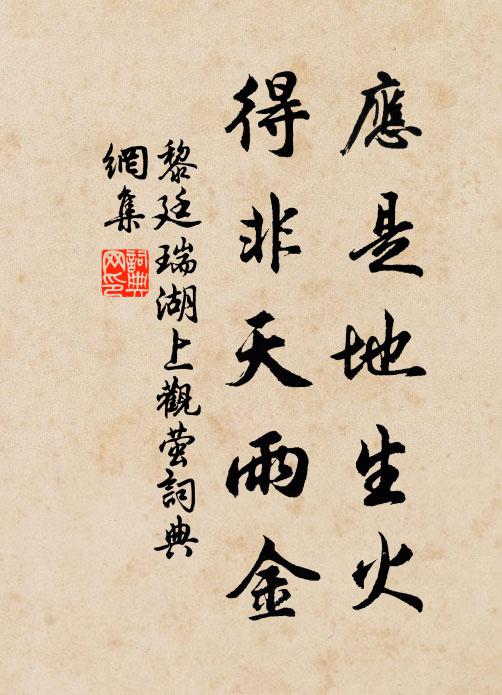 應是地生火
得非天雨金
黎廷瑞湖上觀螢詞典
網集
詞典
网印